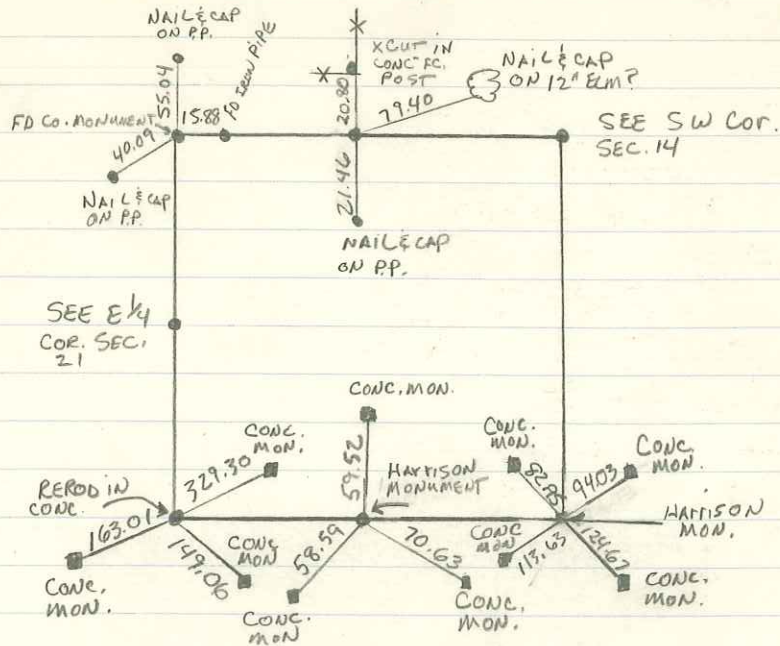 NAIL & CAP
ON P.P.
55.04
FD IRON PIPE
X CUT IN
CONC. FC.
POST
20.80
NAIL & CAP
ON 12" ELM?
79.40
FD CO. MONUMENT
15.88
40.09
SEE SW COR.
SEC. 14
NAIL & CAP
ON P.P.
21.46
NAIL & CAP
ON P.P.
SEE E 1/4
COR. SEC.
21
CONC. MON.
CONC.
MON.
329.30
59.52
HARRISON
MONUMENT
CONC.
MON.
82.85
94.03
CONC.
MON.
REROD IN
CONC.
163.01
149.06
CONC.
MON
58.59
70.63
CONC
MON
113.63
124.67
HARRISON
MON.
CONC.
MON.
CONC.
MON
CONC.
MON.
CONC.
MON.